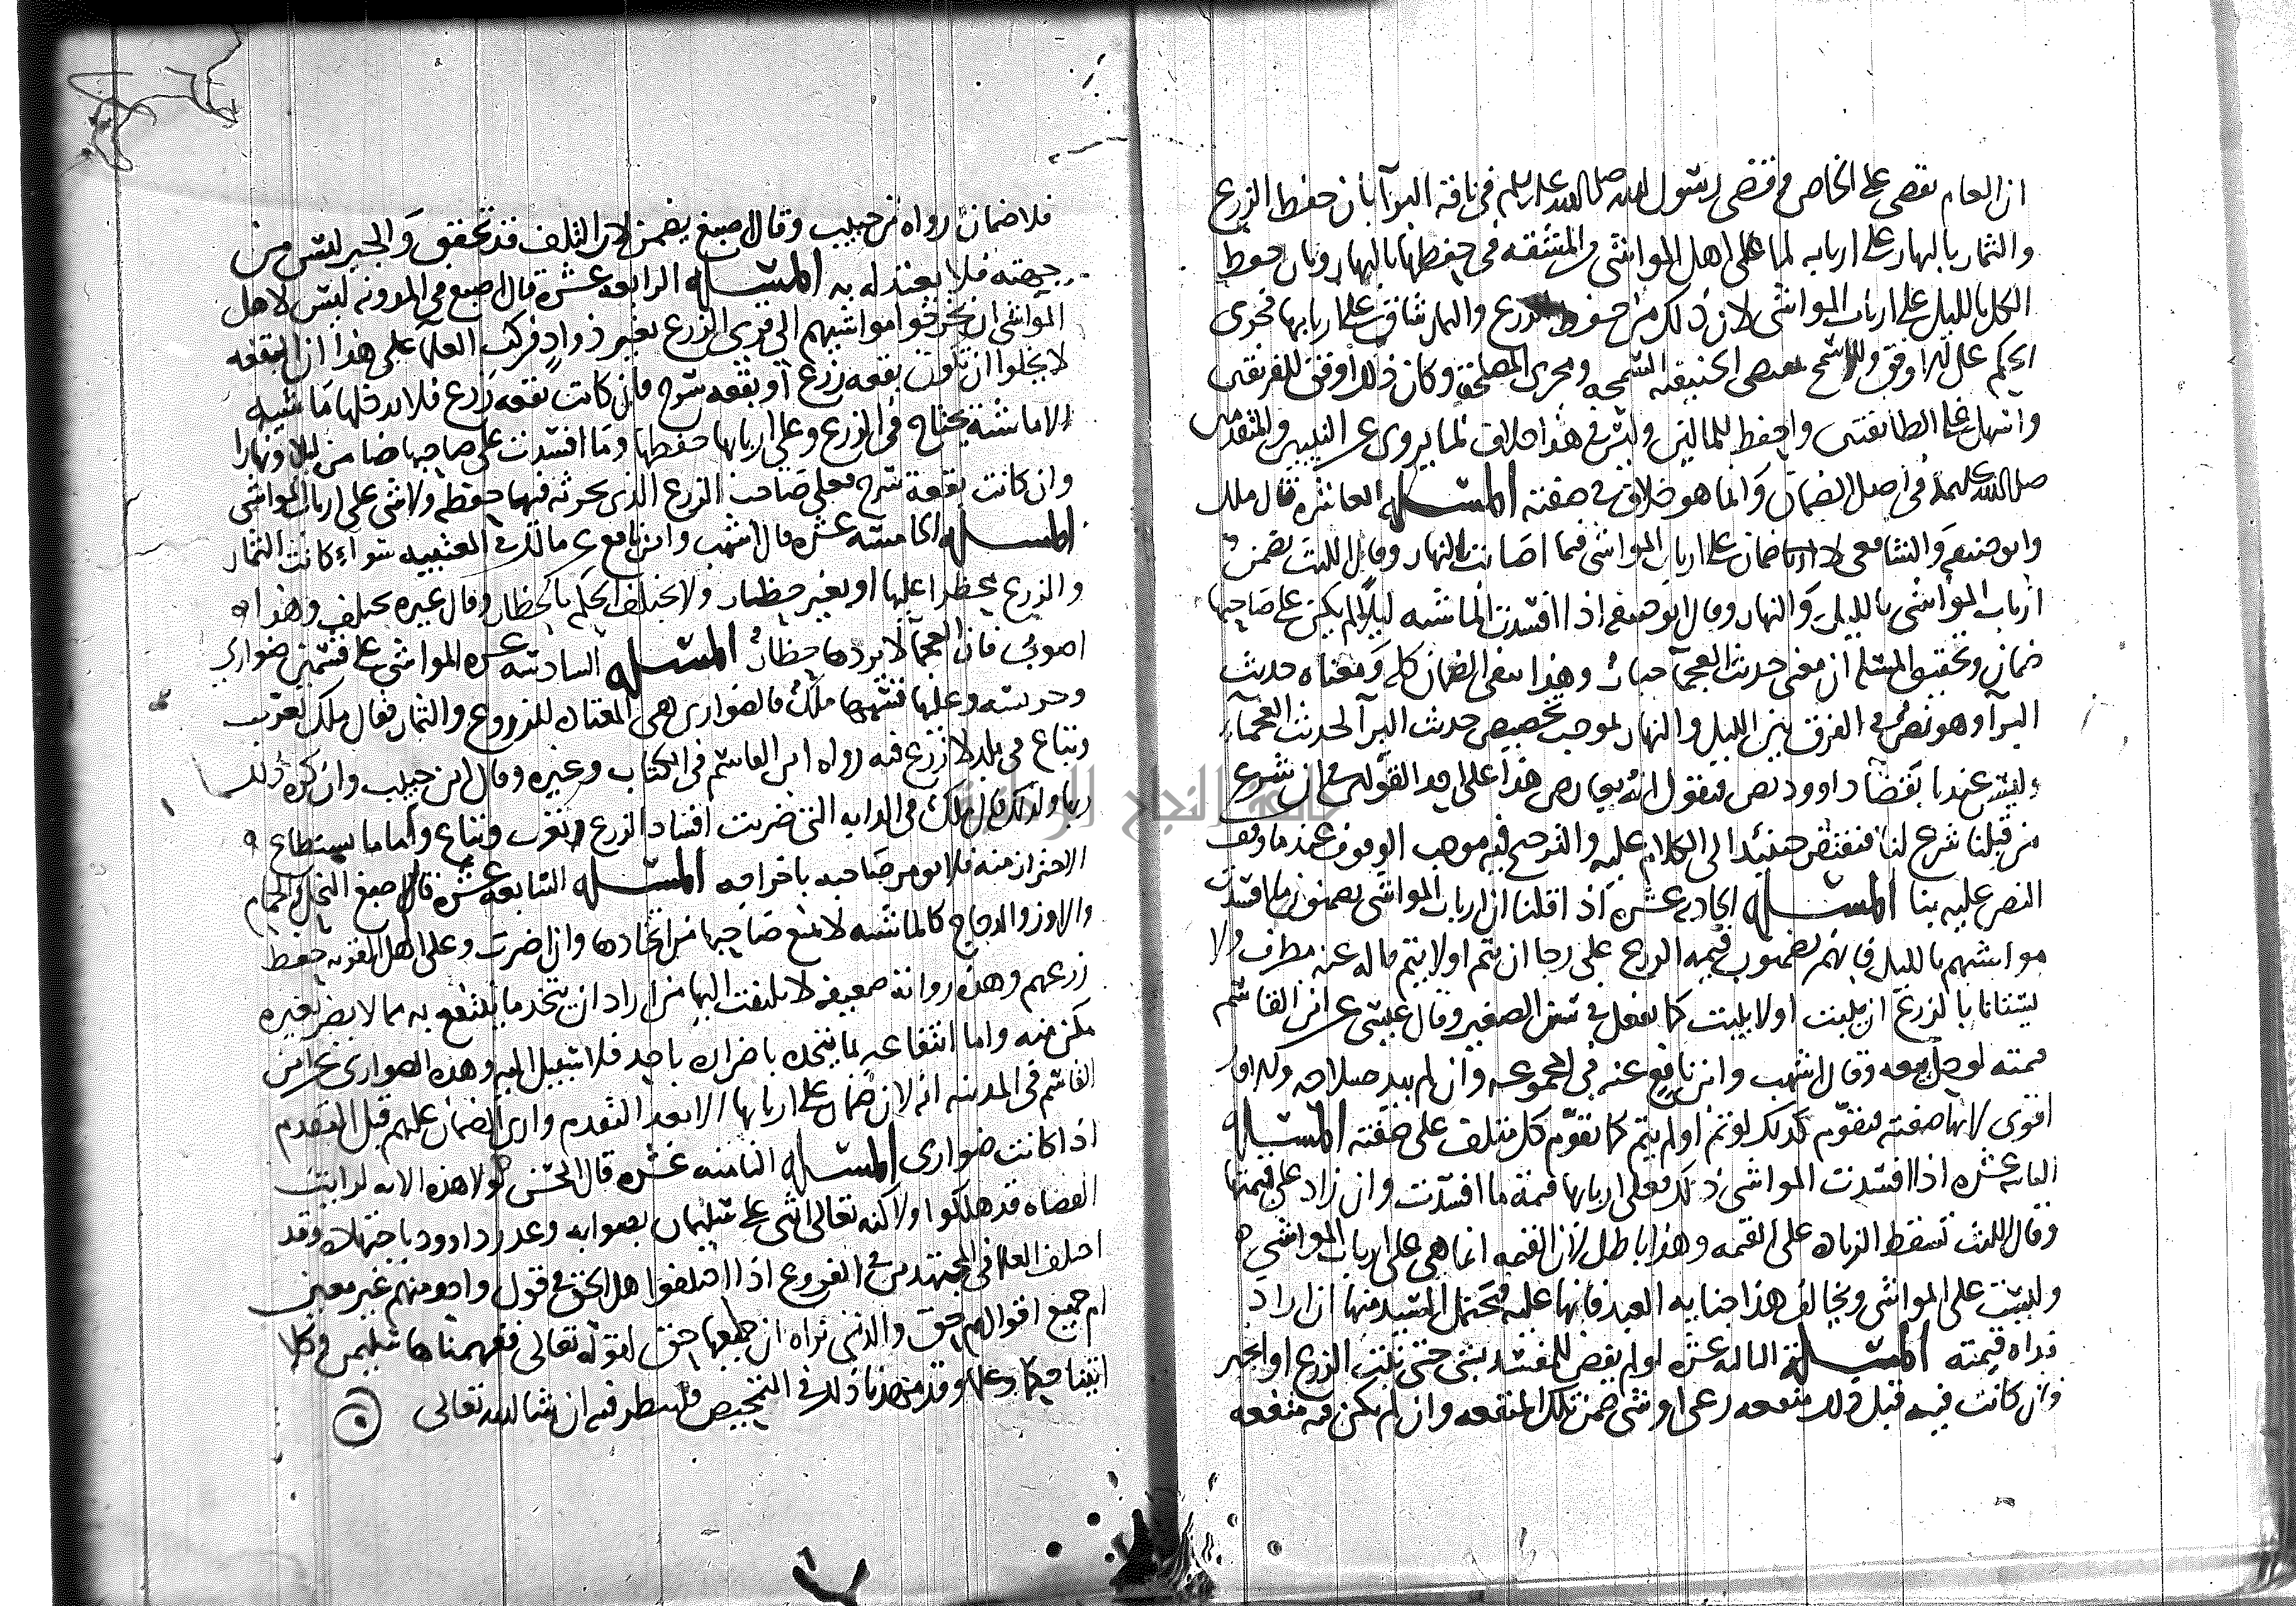 ان العام يقضي على الخاص فقضى رسول الله صلى الله عليه وسلم في ناقة البرآ بان حفظ الزرع
والثمار بالنهار على اربابه لما على اهل المواشي من المشقه في حفظها بالنهار وبان حفظ
الكل بالليل على ارباب المواشي لان ذلك من حفظ الزرع والثمار شاق على اربابها فجرى
الحكم على الاوفق والاسمح بمقتضى الحنيفيه السمحه ومجرى المصلحة وكان ذلك اوفق للفريقين
واسهل على الطائفتين واحفظ للمالين وليس في هذا خلاف لما يروى عن النبيين المتقدمين
صلى الله عليهما في اصل الضمان وانما هو خلاف في صفته المسئله العاشرة قال ملك
وابو حنيفه والشافعي لا ضمان على ارباب المواشي فيما اصابت بالنهار وقال الليث يضمن
ارباب المواشي بالليل والنهار وقال ابو حنيفه اذا افسدت الماشيه ليلا لم يكن على صاحبها
ضمان وتحقيق المسئله ان معنى حديث العجمآ جبار وهذا ينفي الضمان كله ومعناه حديث
البرآ وهو نص في الفرق بين الليل والنهار لموجب تخصيص حديث البرآ لحديث العجمآء
وليس عندنا بقضآ داوود نص فنقول انه يعارض هذا على احد القولين في ان شرع
من قبلنا شرع لنا فنفتقر حينئذ الى الكلام عليه والترجيح فيه فوجب الوقوف عند ما وقف
النص عليه بنا المسئله الحاديه عشره اذا قلنا ان ارباب المواشي يضمنون ما افسدت
مواشيهم بالليل فانهم يضمنون قيمه الزرع على رجا ان يتم اولا يتم قاله عنه مطرف ولا
يستانا بالزرع ان ينبت اولا ينبت كما يفعل في سن الصغير وقال عيسى عن ابن القاسم
قيمته لو حل بيعه وقال اشهب وابن نافع عنه في المجموعه وان لم يبد صلاحه والاول
اقوى لانها صفته فيقوم كذلك لو تم او لم يتم كما يقوم كل متلف على صفته المسئله
الثانيه عشره اذا افسدت المواشي ذلك فعلى اربابها قيمة ما افسدت وان زاد على قيمتها
وقال الليث تسقط الزياده على القيمه وهذا باطل لان القيمه انما هي على ارباب المواشي
وليست على المواشي ويخالف هذا جنايه العبد فانها عليه فيحتمل السيد منها ان اراد
فداه قيمته المسئله الثالثه عشره لو لم يقض للمفسد بشي حتى نبت الزرع او انجبر
فان كانت فيه قبل ذلك منفعه رعى او شي ضمن تلك المنفعه وان لم يكن فيه منفعه
فلا ضمان رواه ابن حبيب وقال اصبغ يضمن لان التلف قد تحقق والجبر ليس من
جهته فلا يعتد له به المسئله الرابعه عشرة قال اصبغ في المدونه ليس لاهل
المواشي ان يخرجوا مواشيهم الى قرى الزرع بغير ذواد فركب العلمآ على هذا ان البقعه
لا يخلوا ان تكون بقعه زرع او بقعه سرح فان كانت بقعه زرع فلا تدخلها ماشيه
الا ماشية يحتاج في الزرع وعلى اربابها حفظها وما افسدت على صاحبها ضامن ليلا ونهارا
وان كانت بقعة سرح فعلى صاحب الزرع الذي حرثه فيها حفظه ولا شي على ارباب المواشي
المسئله الخامسه عشره قال اشهب وابن نافع عن مالك في العتبيه سوآء كانت الثمار
والزرع محظرا عليها او بغير حظار ولا يختلف الحكم بالحظار وقال غيره يختلف وهذا
اصوب فان العجمآ لا يردها حظار المسئله السادسه عشره المواشي على قسمين ضواري
وحريسه وعليها قسمها ملك فالضواري هي المعتاده للزروع والثمار فقال ملك تغرب
وتباع في بلد لا زرع فيه رواه ابن القاسم في الكتاب وغيره وقال ابن حبيب وان كره ذلك
ربها ولذلك قال ملك في الدابه التي ضريت افساد الزرع تغرب وتباع واما ما يستطاع
الاحتراز منه فلا يومر صاحبه باخراجه المسئله السابعه عشره قال اصبغ النحل والحمام
والاوز والدجاج كالماشيه لا يمنع صاحبها من اتخاذها وان اضرت وعلى اهل القريه حفظ
زرعهم وهذه رواية ضعيفه لا يلتفت اليها من اراد ان يتخذ ما ينتفع به مما لا يضر بغيره
مكن منه واما انتفاعه بما يتخذه باضراره باحد فلا سبيل اليه وهذه الضواري عن ابن
القاسم في المدينه انه لا ضمان على اربابها الا بعد التقدم وارى الضمان عليهم قبل التقدم
اذا كانت ضواري المسئله الثامنه عشره قال الحسن لولا هذه الايه لرايت
القضاه قد هلكوا ولاكنه تعالى اثنى على سليمان بصوابه وعذر داوود باجتهاده وقد
اختلف العلمآ في المجتهدين في الفروع اذا اختلفوا هل الحق في قول واحد منهم غير معين
ام جميع اقوالهم حق والذي نراه ان جميعها حق لقوله تعالى ففهمناها سليمن وكلا
اتينا حكما وعلما وقد مهدنا ذلك في التمحيص فلينظر فيه ان شا الله تعالى